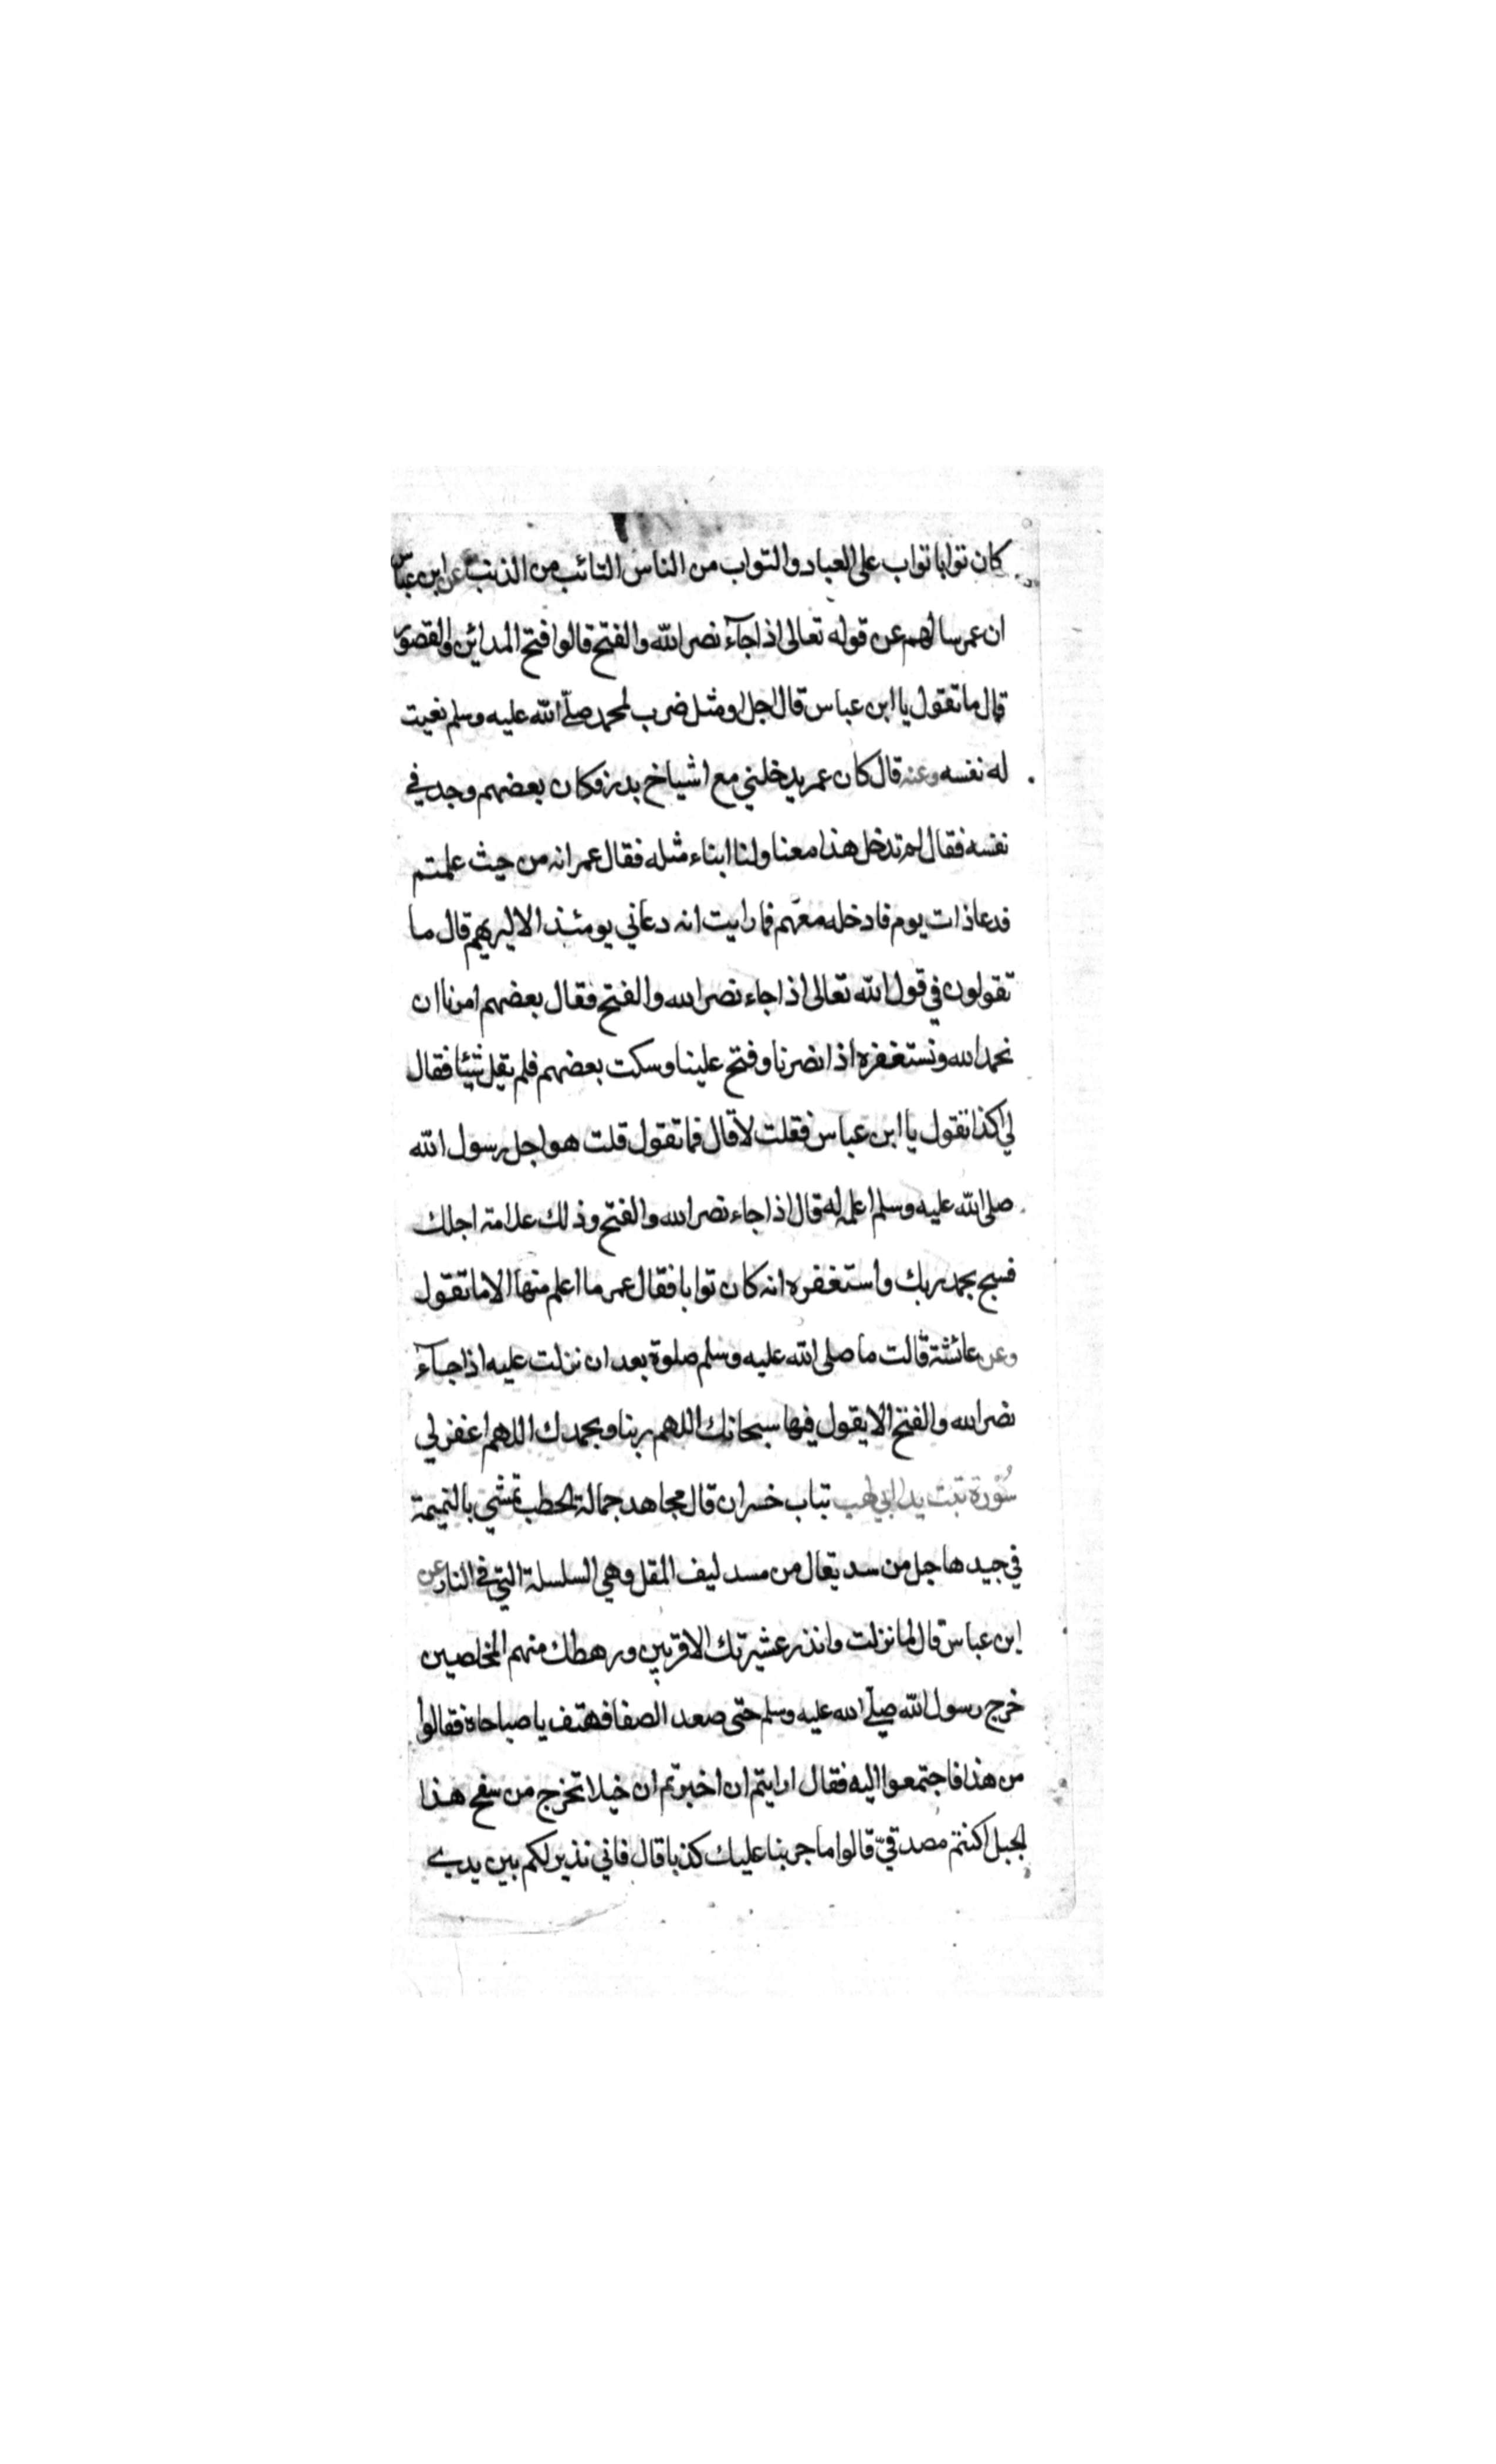 كان توابا تواب على العباد والتواب من الناس التائب من الذنب عن ابن عباس
ان عمر سالهم عن قوله تعالى اذا جآء نصر الله والفتح قالوا فتح المدائن والقصور
قال ما تقول يا ابن عباس قال اجل او مثل ضرب لمحمد صلّى الله عليه وسلم نعيت
له نفسه وعنه قال كان عمر يدخلني مع اشياخ بدر فكان بعضهم وجد في
نفسه فقال لم تدخل هذا معنا ولنا ابناء مثله فقال عمر انه من حيث علمتم
فدعا ذات يوم فادخله معهم فما رايت انه دعاني يومئذ الا ليريهم قال ما
تقولون في قول الله تعالى اذا جاء نصر الله والفتح فقال بعضهم امرنا ان
نحمد الله ونستغفره اذا نصرنا وفتح علينا وسكت بعضهم فلم يقل شيئا فقال
لي اكذا تقول يا ابن عباس فقلت لا قال فما تقول قلت هو اجل رسول الله
صلى الله عليه وسلم اعلمه له قال اذا جاء نصر الله والفتح وذلك علامة اجلك
فسبح بحمد ربك واستغفره انه كان توابا فقال عمر ما اعلم منها الا ما تقول
وعن عائشة قالت ما صلى الله عليه وسلم صلوة بعد ان نزلت عليه اذا جآء
نصر الله والفتح الا يقول فيها سبحانك اللهم ربنا وبحمدك اللهم اغفر لي
سُوْرة تبت يدا ابي لهب تباب خسران قال مجاهد حمالة الحطب تمشي بالنميمة
في جيدها حبل من سد يقال من مسد ليف المقل وهي السلسلة التي في النار عن
ابن عباس قال لما نزلت وانذر عشيرتك الاقربين ورهطك منهم المخلصين
خرج رسول الله صلّى الله عليه وسلم حتى صعد الصفا فهتف يا صباحاه فقالوا
من هذا فاجتمعوا اليه فقال ارايتم ان اخبرتكم ان خيلا تخرج من سفح هذا
الجبل اكنتم مصدقيّ قالوا ما جربنا عليك كذبا قال فاني نذير لكم بين يدي